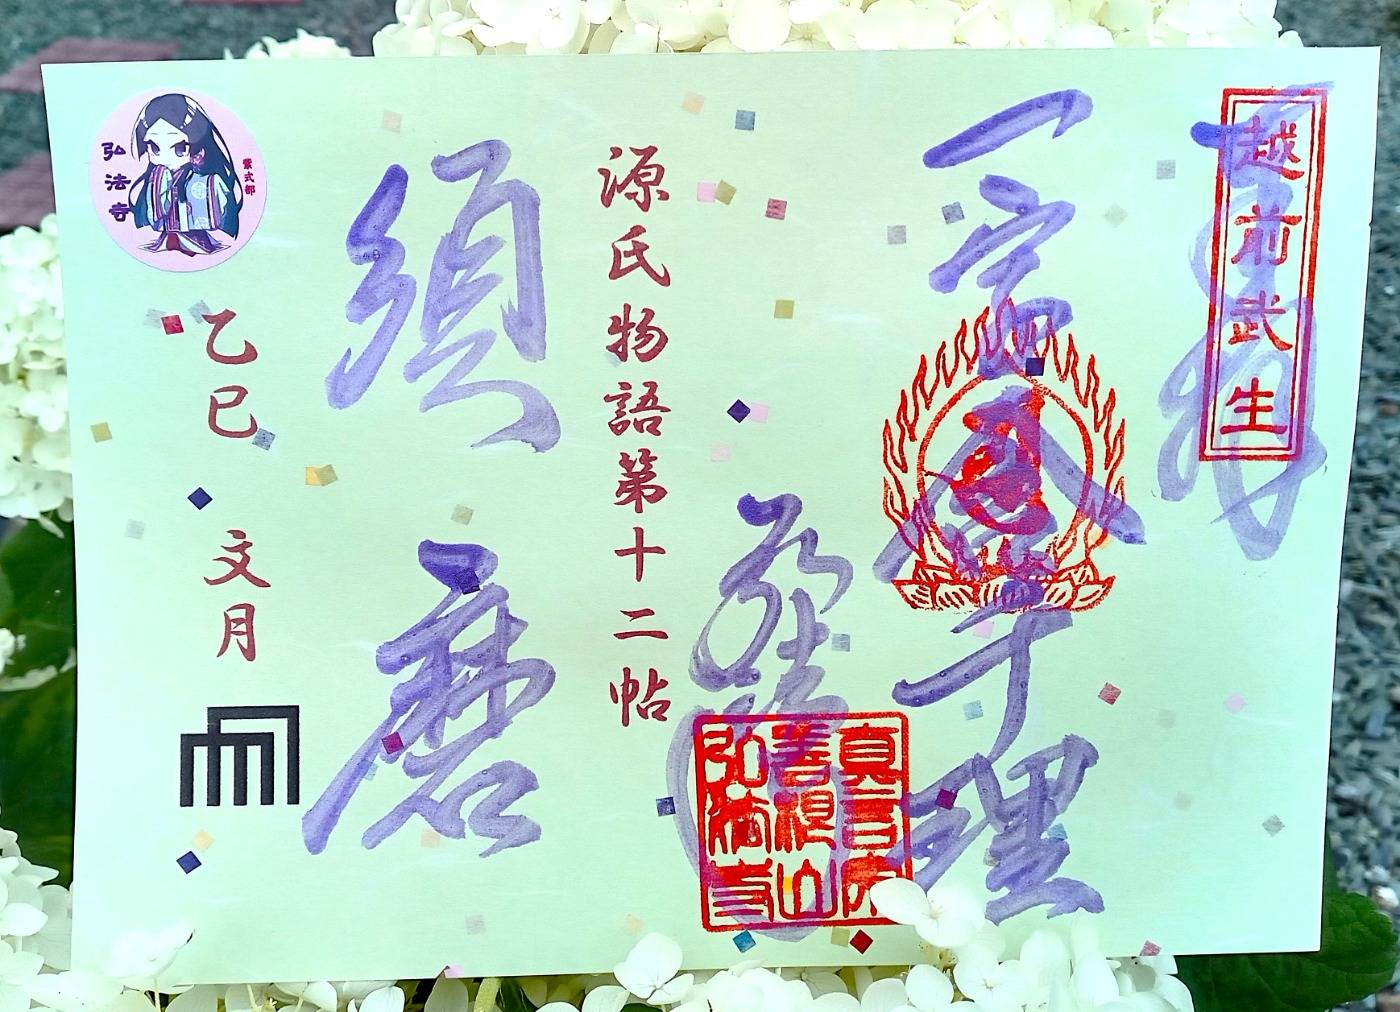 越前武生
奉拝
一字含千理
弘法寺
真言宗
善視山
弘法寺
源氏物語第十二帖
須磨
紫式部
弘法寺
乙巳
文月